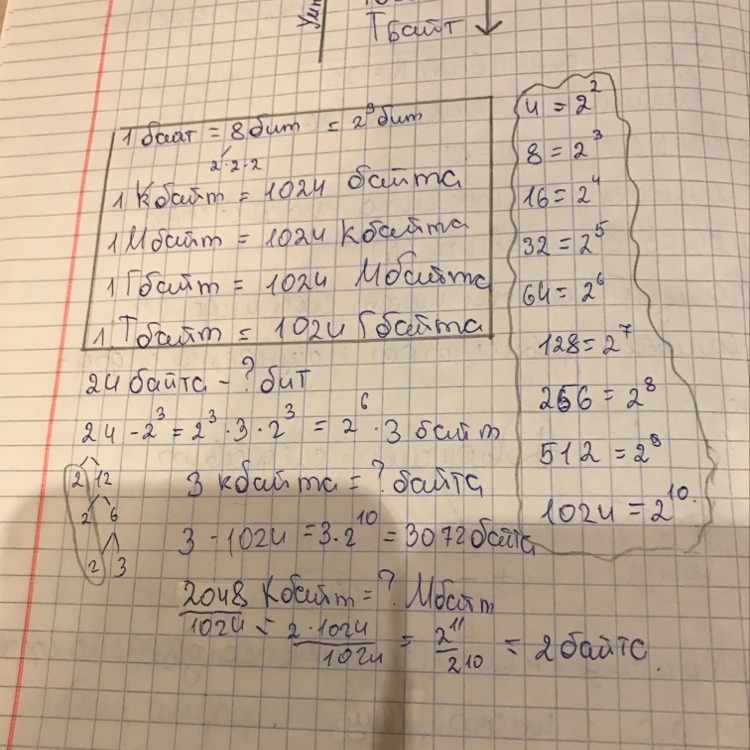 Тбайт
1 байт = 8 бит = 2³ бит
2·2·2
1 Кбайт = 1024 байта
1 Мбайт = 1024 Кбайта
1 Гбайт = 1024 Мбайта
1 Тбайт = 1024 Гбайта
4 = 2²
8 = 2³
16 = 2⁴
32 = 2⁵
64 = 2⁶
128 = 2⁷
256 = 2⁸
512 = 2⁹
1024 = 2¹⁰
24 байта - ? бит
24 - 2³ = 2³ · 3 · 2³ = 2⁶ · 3 байт
2 12
2 6
2 3
3 кбайта = ? байта
3 - 1024 = 3 · 2¹⁰ = 3072 байта
2048 Кбайт = ? Мбайт
2048/1024 = 2·1024/1024 = 2¹¹/2¹⁰ = 2 байта.